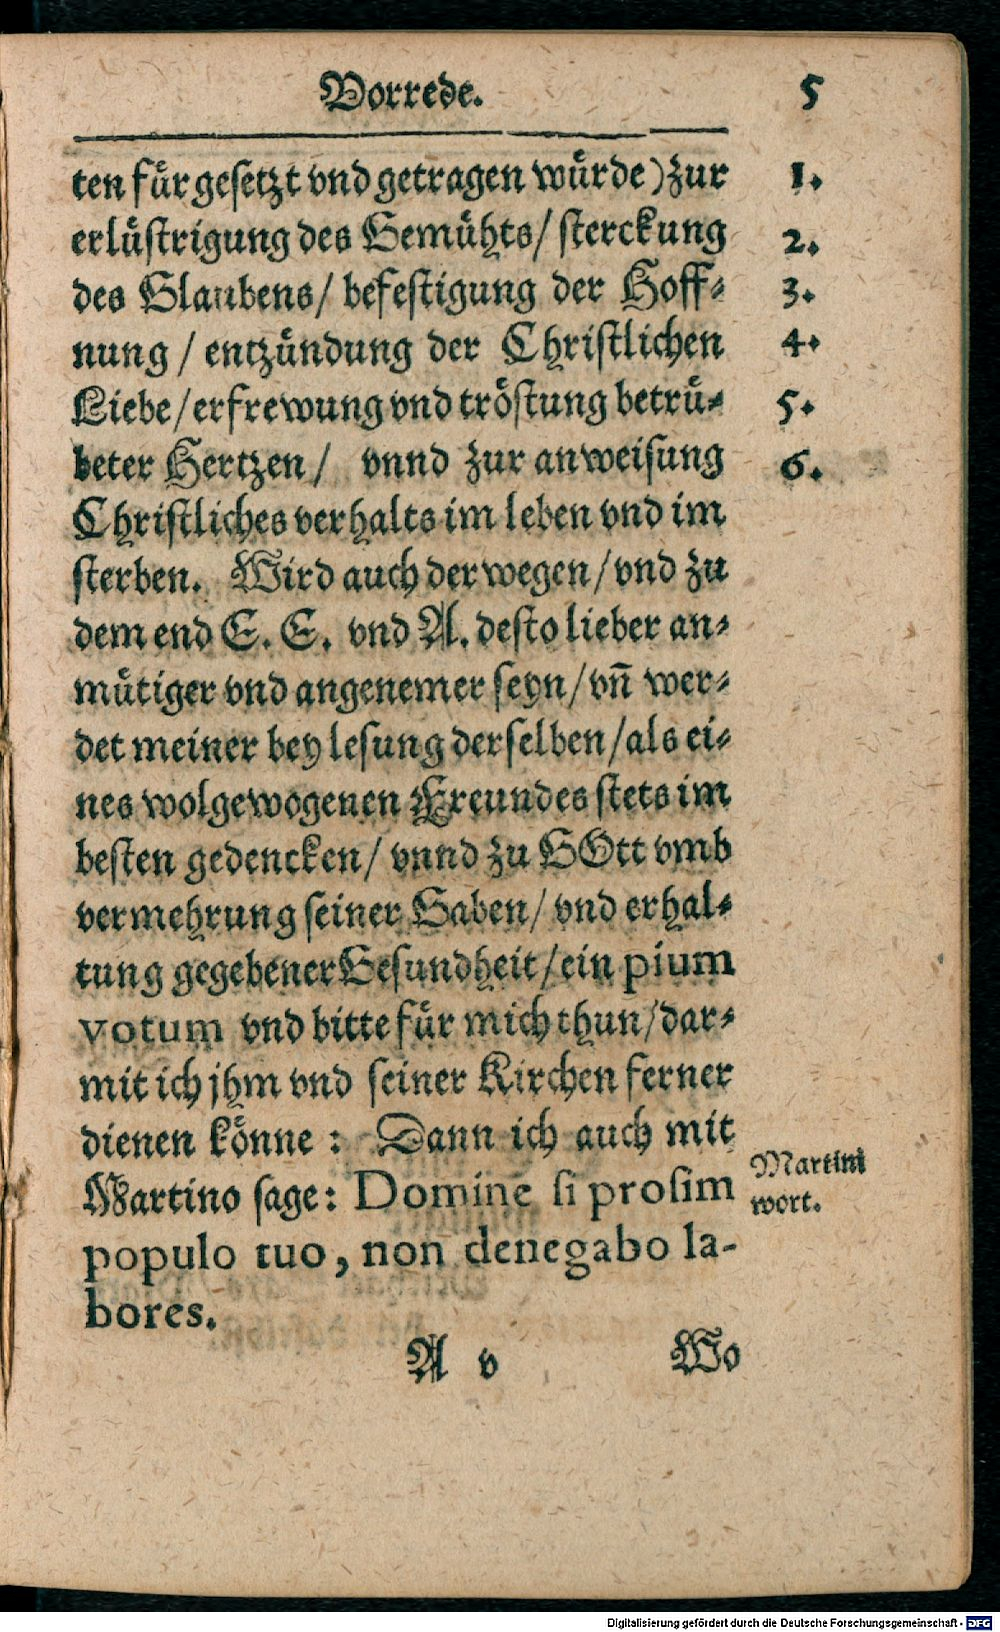 Vorrede. 5
ten fuͤrgesetzt vnd getragen wuͤrde) zur 1.
erluͤstrigung des Gemuͤhts/ sterckung 2.
des Glaubens/ befestigung der Hoff⸗ 3.
nung / entzuͤndung der Christlichen 4.
Liebe/ erfrewung vnd troͤstung betruͤ⸗ 5.
beter Hertzen/ vnnd zur anweisung 6.
Christliches verhalts im leben vnd im
sterben. Wird auch derwegen/ vnd zu
dem end E. E. vnd A. desto lieber an⸗
muͤtiger vnd angenemer seyn/ vñ wer⸗
det meiner bey lesung derselben/ als ei⸗
nes wolgewogenen Freundes stets im
besten gedencken/ vnnd zu GOtt vmb
vermehrung seiner Gaben/ vnd erhal⸗
tung gegebener Gesundheit/ ein pium
votum vnd bitte fuͤr mich thun/ dar⸗
mit ich jhm vnd seiner Kirchen ferner
dienen koͤnne : Dann ich auch mit
Martino sage: Domine si prosim
populo tuo, non denegabo la-
bores.
Martini
wort.
A v Wo
Digitalisierung gefördert durch die Deutsche Forschungsgemeinschaft - DFG